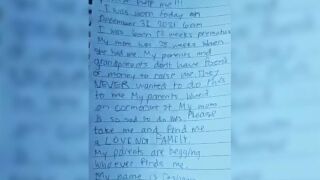 help me!!!
I was born today on
December 31, 2021 6am
I was born 12 weeks premature
My mom was 28 weeks when
she had me. My parents and
grandparents dont have food
or money to raise me. They
NEVER wanted to do this
to me My parents
on My mom
is so sad to do this. Please
take me and find me
a LOVING FAMILY.
My parents are begging
whoever finds me.
My name is